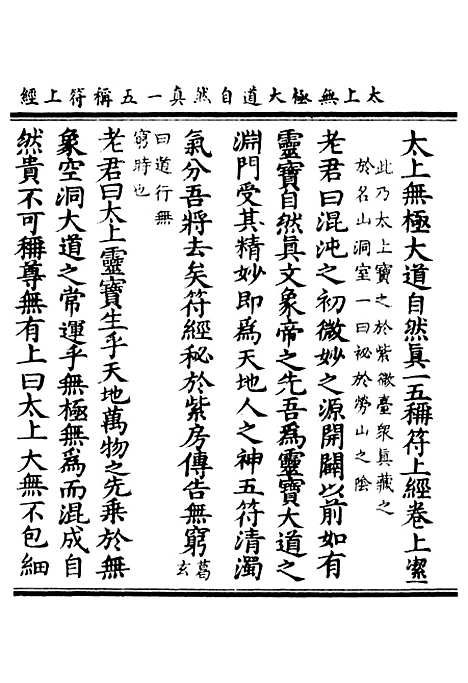 太上無極大道自然真一五稱符上經
太上無極大道自然真一五稱符上經卷上 潔一
此乃太上寶之於紫微臺衆真藏之
於名山洞室一曰祕於勞山之陰
老君曰混沌之初微妙之源開闢以前如有
靈寶自然真文象帝之先吾爲靈寶大道之
淵門受其精妙即爲天地人之神五符清濁
氣分吾將去矣符經秘於紫房傳告無窮葛玄
曰道行無
窮時也
老君曰太上靈寶生乎天地萬物之先乘於無
象空洞大道之常運乎無極無爲而混成自
然貴不可稱尊無有上曰太上大無不包細